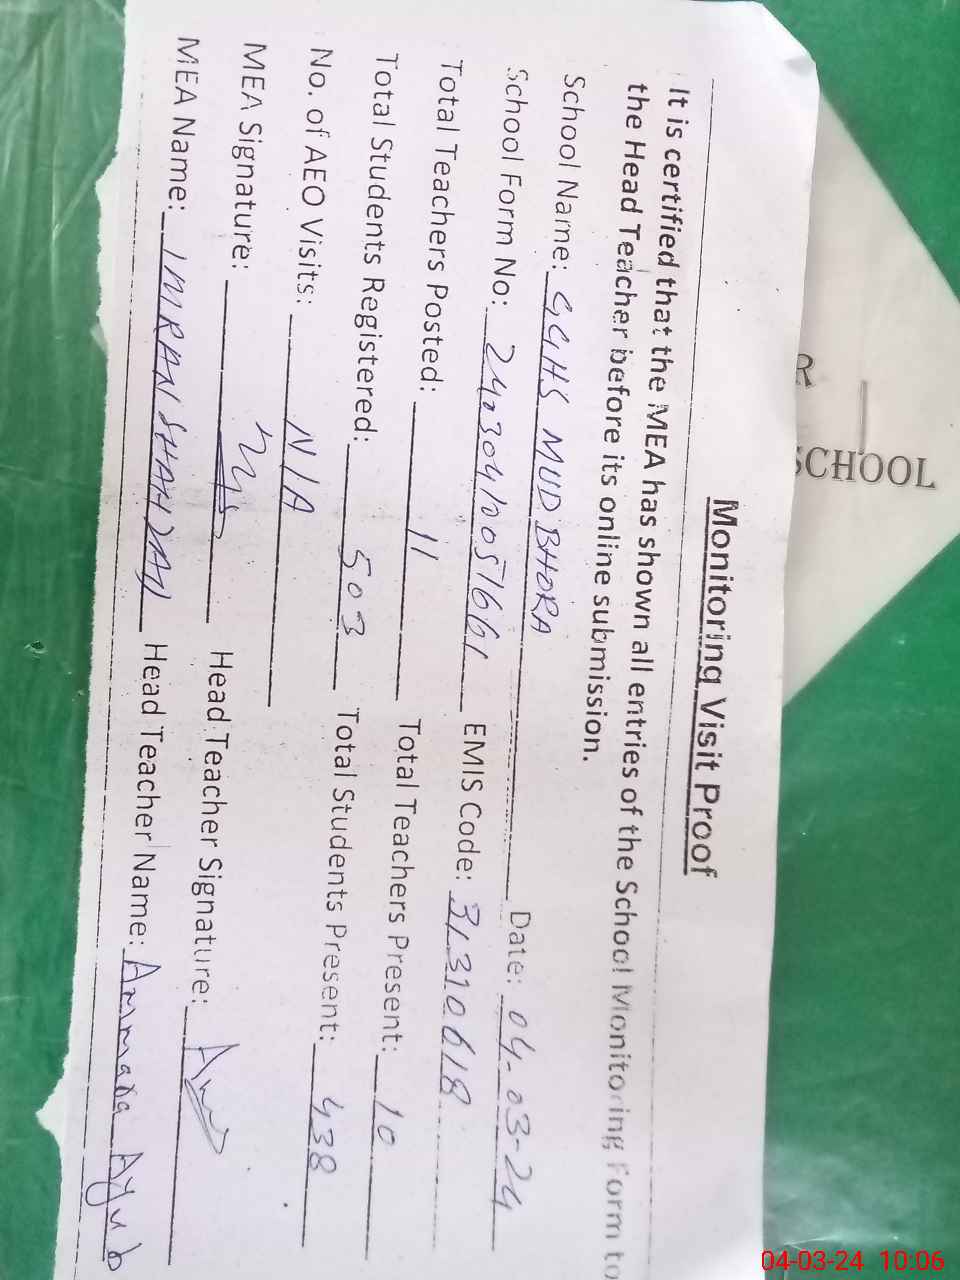 Monitoring Visit Proof
It is certified that the MEA has shown all entries of the School Monitoring Form to
the Head Teacher before its online submission.
School Name: GGHS MUD BHORA Date: 04-03-24
School Form No: EMIS Code: 31310618
Total Teachers Posted: 11 Total Teachers Present: 10
Total Students Registered: 503 Total Students Present: 438
No. of AEO Visits: N/A
MEA Signature: Head Teacher Signature:
MEA Name: IMRAN SHAHZAD Head Teacher Name: Ammara Ayub
R
SCHOOL
04-03-24 10:06